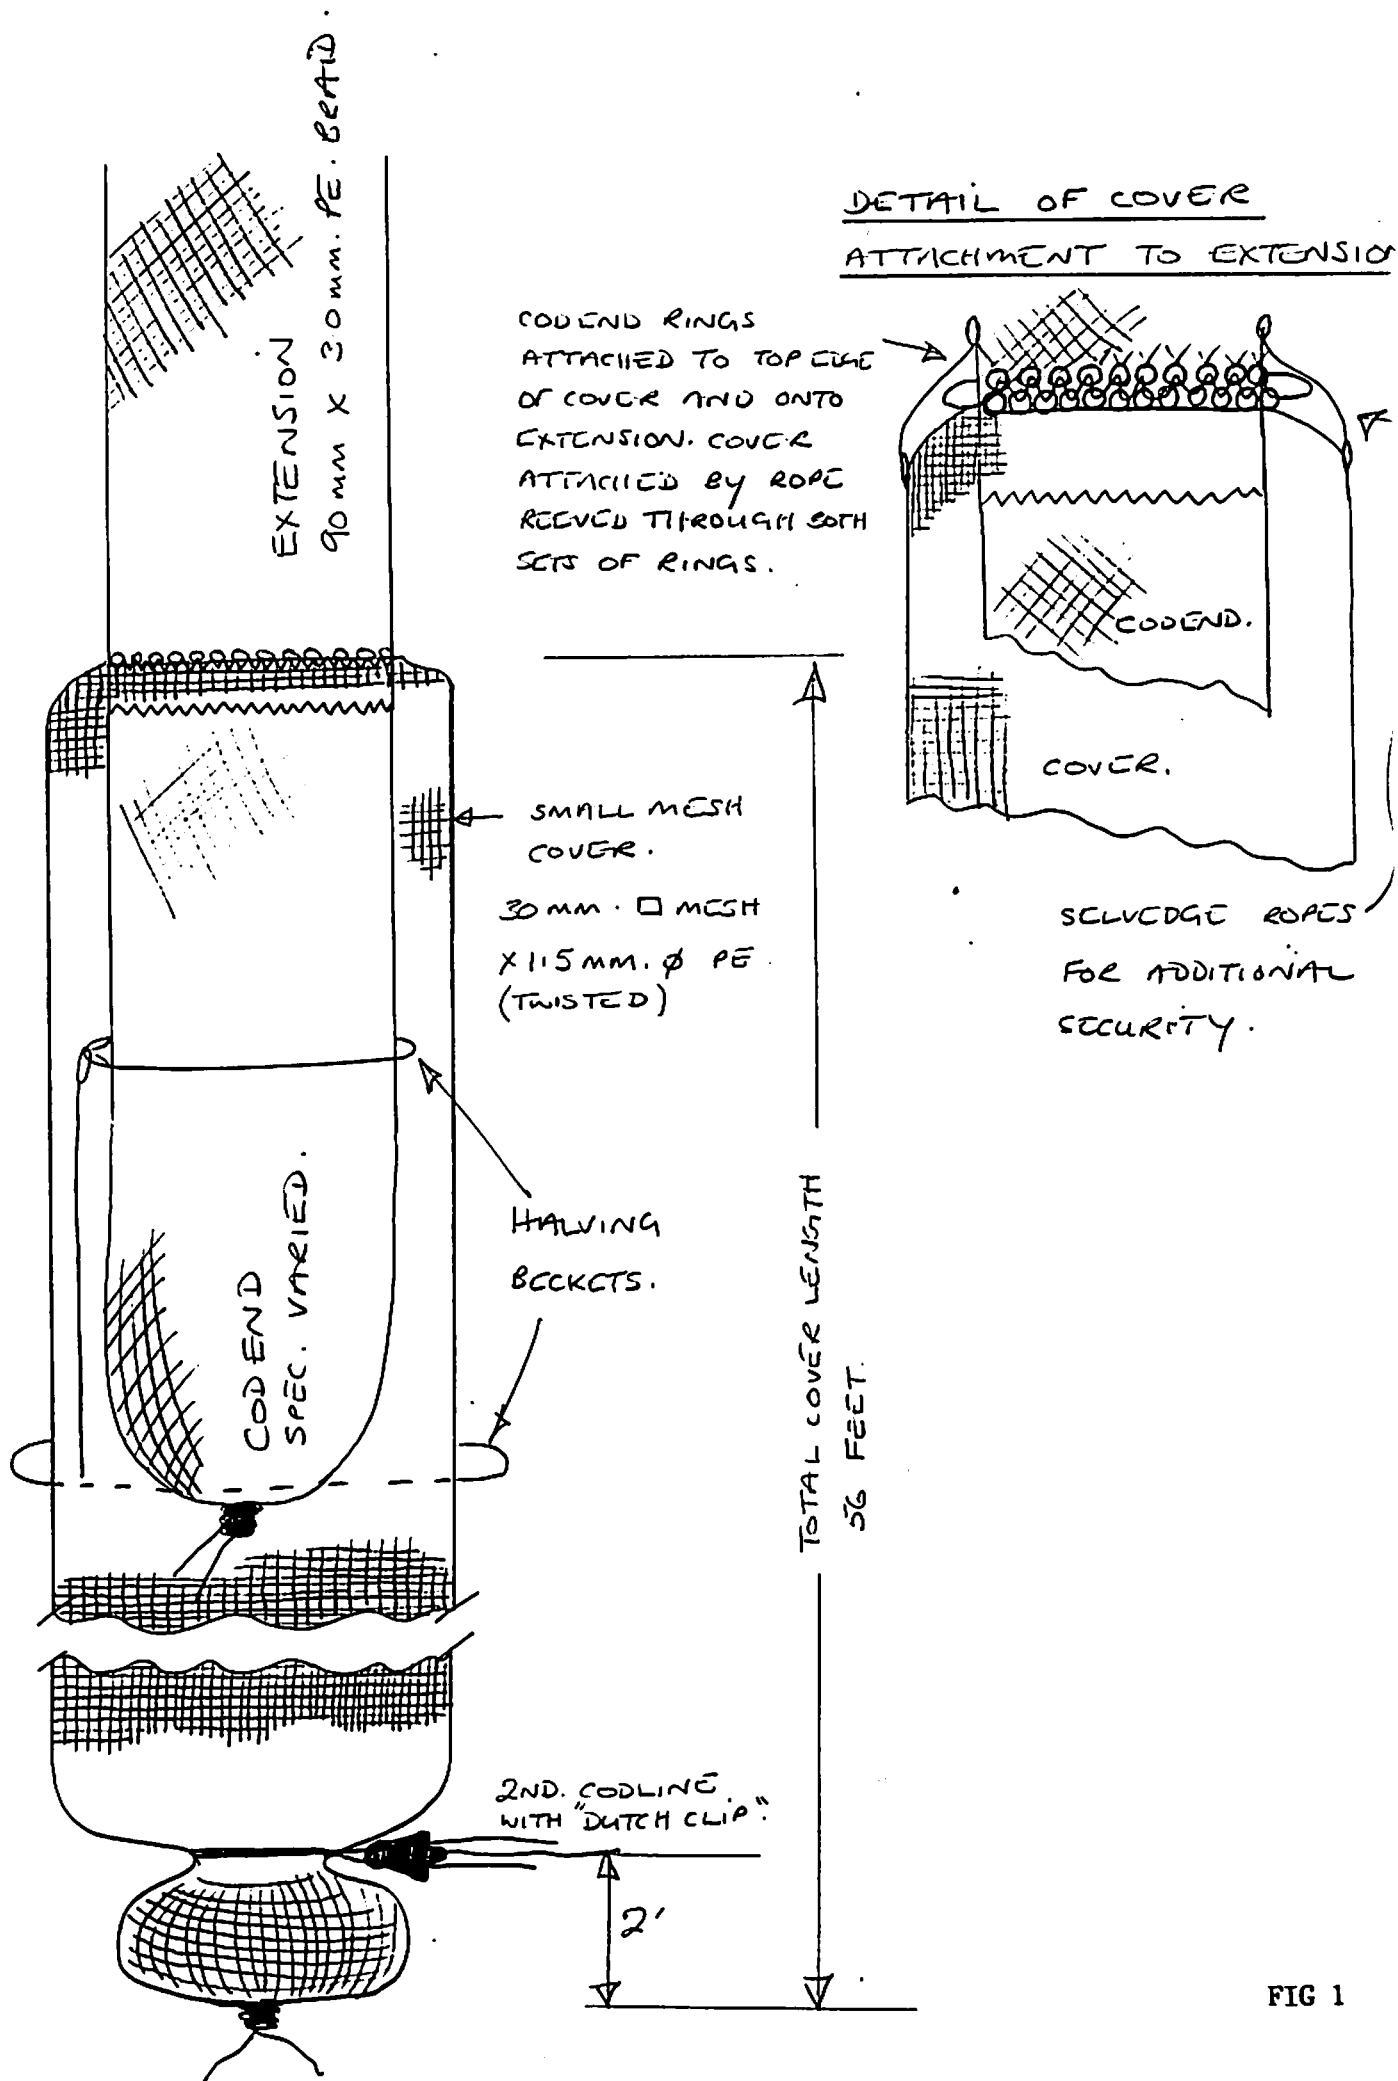 EXTENSION
90mm x 3.0mm. PE. BRAID.
DETAIL OF COVER
ATTACHMENT TO EXTENSIO
CODEND RINGS
ATTACHED TO TOP EDGE
OF COVER AND ONTO
EXTENSION. COVER
ATTACHED BY ROPE
REEVED THROUGH BOTH
SETS OF RINGS.
CODEND.
COVER.
SMALL MESH
COVER.
30mm. □ MESH
x 1.5mm. φ PE
(TWISTED)
SELVEDGE ROPES
FOR ADDITIONAL
SECURITY.
HALVING
BECKETS.
CODEND
SPEC. VARIED.
TOTAL COVER LENGTH
56 FEET.
2ND. CODLINE
WITH "DUTCH CLIP".
2'
FIG 1